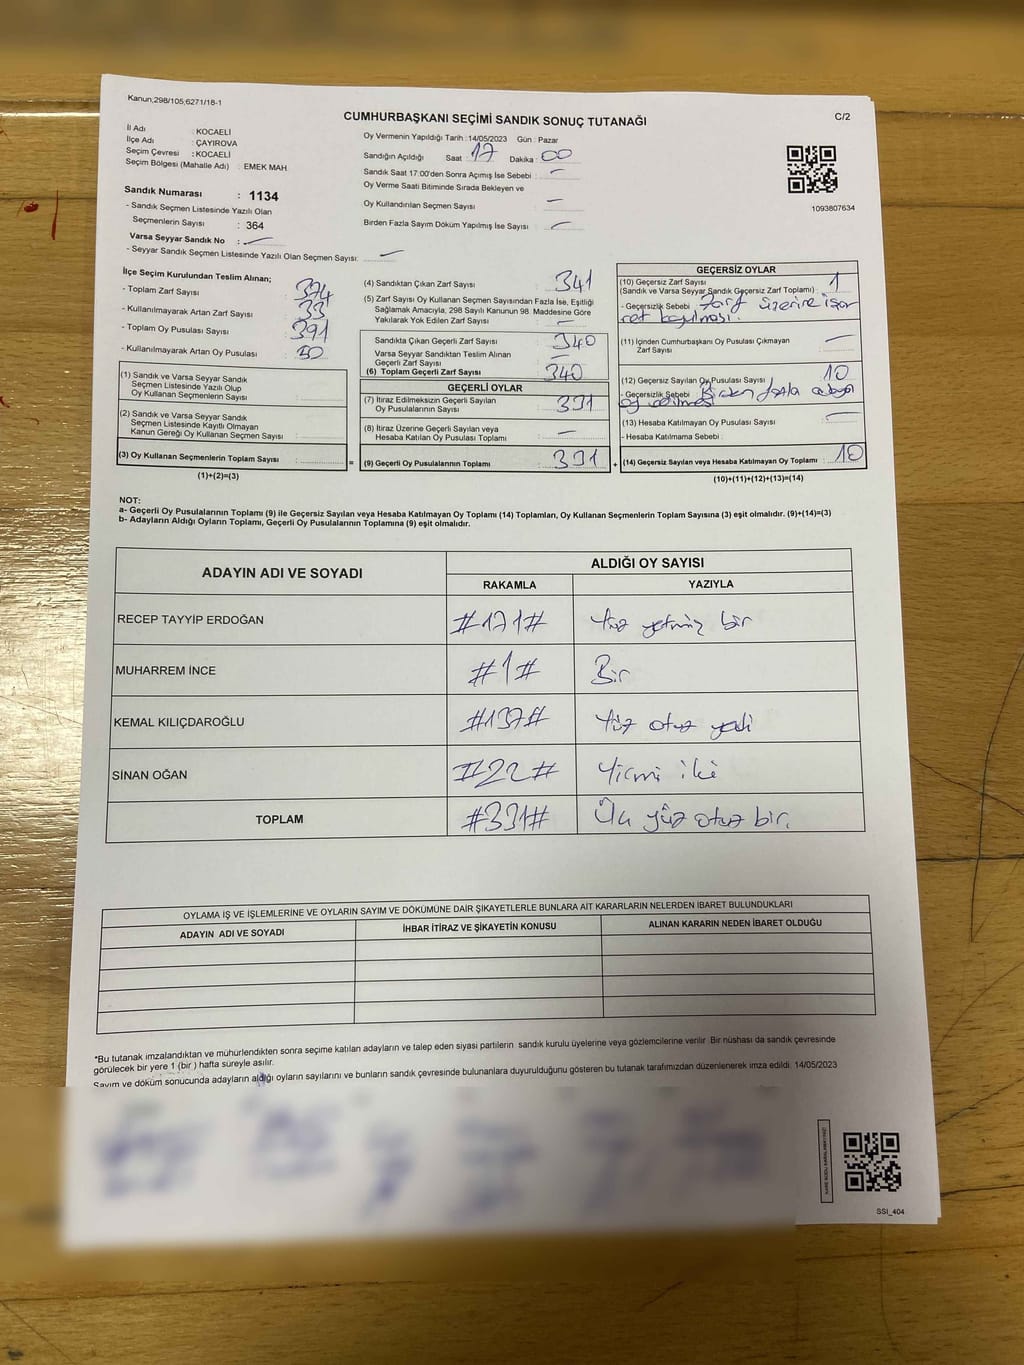 Kanun;298/105;6271/18-1
CUMHURBAŞKANI SEÇİMİ SANDIK SONUÇ TUTANAĞI
C/2
İl Adı : KOCAELİ
İlçe Adı : ÇAYIROVA
Seçim Çevresi : KOCAELİ
Seçim Bölgesi (Mahalle Adı) : EMEK MAH
Sandık Numarası : 1134
- Sandık Seçmen Listesinde Yazılı Olan
Seçmenlerin Sayısı : 364
Varsa Seyyar Sandık No : —
- Seyyar Sandık Seçmen Listesinde Yazılı Olan Seçmen Sayısı: —
Oy Vermenin Yapıldığı Tarih : 14/05/2023 Gün : Pazar
Sandığın Açıldığı Saat : 17 Dakika : 00
Sandık Saat 17:00'den Sonra Açımış İse Sebebi : —
Oy Verme Saati Bitiminde Sırada Bekleyen ve
Oy Kullandırılan Seçmen Sayısı : —
Birden Fazla Sayım Döküm Yapılmış İse Sayısı : —
1093807634
İlçe Seçim Kurulundan Teslim Alınan;
- Toplam Zarf Sayısı : 374
- Kullanılmayarak Artan Zarf Sayısı : 33
- Toplam Oy Pusulası Sayısı : 391
- Kullanılmayarak Artan Oy Pusulası : 50
(1) Sandık ve Varsa Seyyar Sandık
Seçmen Listesinde Yazılı Olup
Oy Kullanan Seçmenlerin Sayısı :
(2) Sandık ve Varsa Seyyar Sandık
Seçmen Listesinde Kayıtlı Olmayan
Kanun Gereği Oy Kullanan Seçmen Sayısı :
(3) Oy Kullanan Seçmenlerin Toplam Sayısı :
(1)+(2)=(3)
(4) Sandıktan Çıkan Zarf Sayısı : 341
(5) Zarf Sayısı Oy Kullanan Seçmen Sayısından Fazla İse, Eşitliği
Sağlamak Amacıyla, 298 Sayılı Kanunun 98. Maddesine Göre
Yakılarak Yok Edilen Zarf Sayısı : —
Sandıkta Çıkan Geçerli Zarf Sayısı : 340
Varsa Seyyar Sandıktan Teslim Alınan
Geçerli Zarf Sayısı : —
(6) Toplam Geçerli Zarf Sayısı : 340
GEÇERLİ OYLAR
(7) İtiraz Edilmeksizin Geçerli Sayılan
Oy Pusulalarının Sayısı : 331
(8) İtiraz Üzerine Geçerli Sayılan veya
Hesaba Katılan Oy Pusulası Toplamı : —
= (9) Geçerli Oy Pusulalarının Toplamı : 331
GEÇERSİZ OYLAR
(10) Geçersiz Zarf Sayısı : 1
(Sandık ve Varsa Seyyar Sandık Geçersiz Zarf Toplamı)
- Geçersizlik Sebebi : Zarf üzerine işa
ret koyulması.
(11) İçinden Cumhurbaşkanı Oy Pusulası Çıkmayan
Zarf Sayısı : —
(12) Geçersiz Sayılan Oy Pusulası Sayısı : 10
- Geçersizlik Sebebi : Birden fazla adaya
oy verilmesi
(13) Hesaba Katılmayan Oy Pusulası Sayısı : —
- Hesaba Katılmama Sebebi :
+ (14) Geçersiz Sayılan veya Hesaba Katılmayan Oy Toplamı : 10
(10)+(11)+(12)+(13)=(14)
NOT:
a- Geçerli Oy Pusulalarının Toplamı (9) ile Geçersiz Sayılan veya Hesaba Katılmayan Oy Toplamı (14) Toplamları, Oy Kullanan Seçmenlerin Toplam Sayısına (3) eşit olmalıdır. (9)+(14)=(3)
b- Adayların Aldığı Oyların Toplamı, Geçerli Oy Pusulalarının Toplamına (9) eşit olmalıdır.
ADAYIN ADI VE SOYADI
ALDIĞI OY SAYISI
RAKAMLA YAZIYLA
RECEP TAYYİP ERDOĞAN #171# Yüz yetmiş bir
MUHARREM İNCE #1# Bir
KEMAL KILIÇDAROĞLU #137# Yüz otuz yedi
SİNAN OĞAN #22# Yirmi iki
TOPLAM #331# Üç yüz otuz bir.
OYLAMA İŞ VE İŞLEMLERİNE VE OYLARIN SAYIM VE DÖKÜMÜNE DAİR ŞİKAYETLERLE BUNLARA AİT KARARLARIN NELERDEN İBARET BULUNDUKLARI
ADAYIN ADI VE SOYADI İHBAR İTİRAZ VE ŞİKAYETİN KONUSU ALINAN KARARIN NEDEN İBARET OLDUĞU
*Bu tutanak imzalandıktan ve mühürlendikten sonra seçime katılan adayların ve talep eden siyasi partilerin sandık kurulu üyelerine veya gözlemcilerine verilir. Bir nüshası da sandık çevresinde
görülecek bir yere 1 (bir) hafta süreyle asılır.
Sayım ve döküm sonucunda adayların aldığı oyların sayılarını ve bunların sandık çevresinde bulunanlara duyurulduğunu gösteren bu tutanak tarafımızdan düzenlenerek imza edildi. 14/05/2023
SSI_404